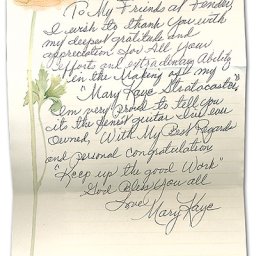 To My Friends at Fender,
I wish to thank you with
my deepest gratitude and
appreciation for All Your
Efforts and extra dinary Ability
in the Making of my
"Mary Kaye Stratocaster"
I'm very proud to tell you
it's the finest guitar I've ever
owned, With My Best Regards
and personal congratulations
"Keep up the good Work"
God Bless You all
Love,
Mary Kaye